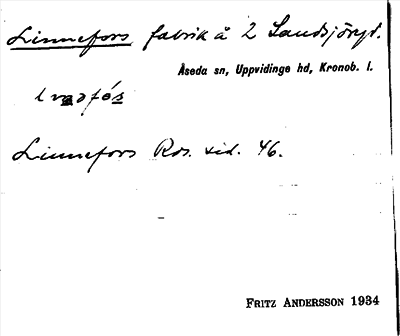 Linnefors fabrik å 2 Sandsjöryd.
Åseda sn, Uppvidinge hd, Kronob. l.
Linnefors Ros. sid. 46.
FRITZ ANDERSSON 1934